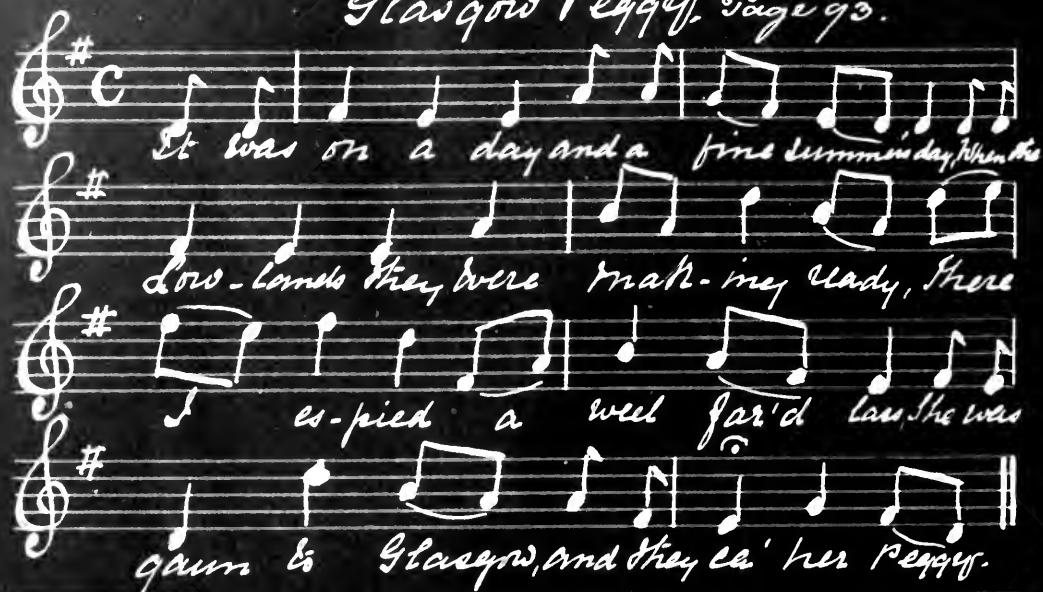 Glasgow Peggy. Page 93.
It was on a day and a fine summer's day, When the
Low-lands they were mak-ing ready, There
I es-pied a weel far'd lass, She was
gaun to Glasgow, and they ca' her Peggy.